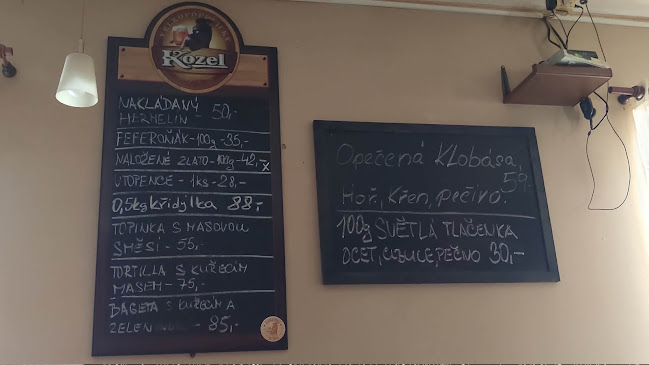 VELKOPOPOVICKÝ
Kozel
NAKLÁDANÝ
HERMELIN - 50,-
FEFEROŇÁK-100g-35,-
NALOŽENÉ ZLATO-100g-42,-x
UTOPENCE - 1ks-28,-
0,5kg křidýlka 88,-
TOPINKA S MASOVOU
SMĚSÍ - 55,-
TORTILLA S KUŘECÍM
MASEM - 75,-
BAGETA S KUŘECÍM A
ZELENINOU - 85,-
Opečená Klobása,
59,-
Hoř., Křen, pečivo.
100g SVĚTLÁ TLAČENKA
OCET, CIBULE, PEČIVO 30,-